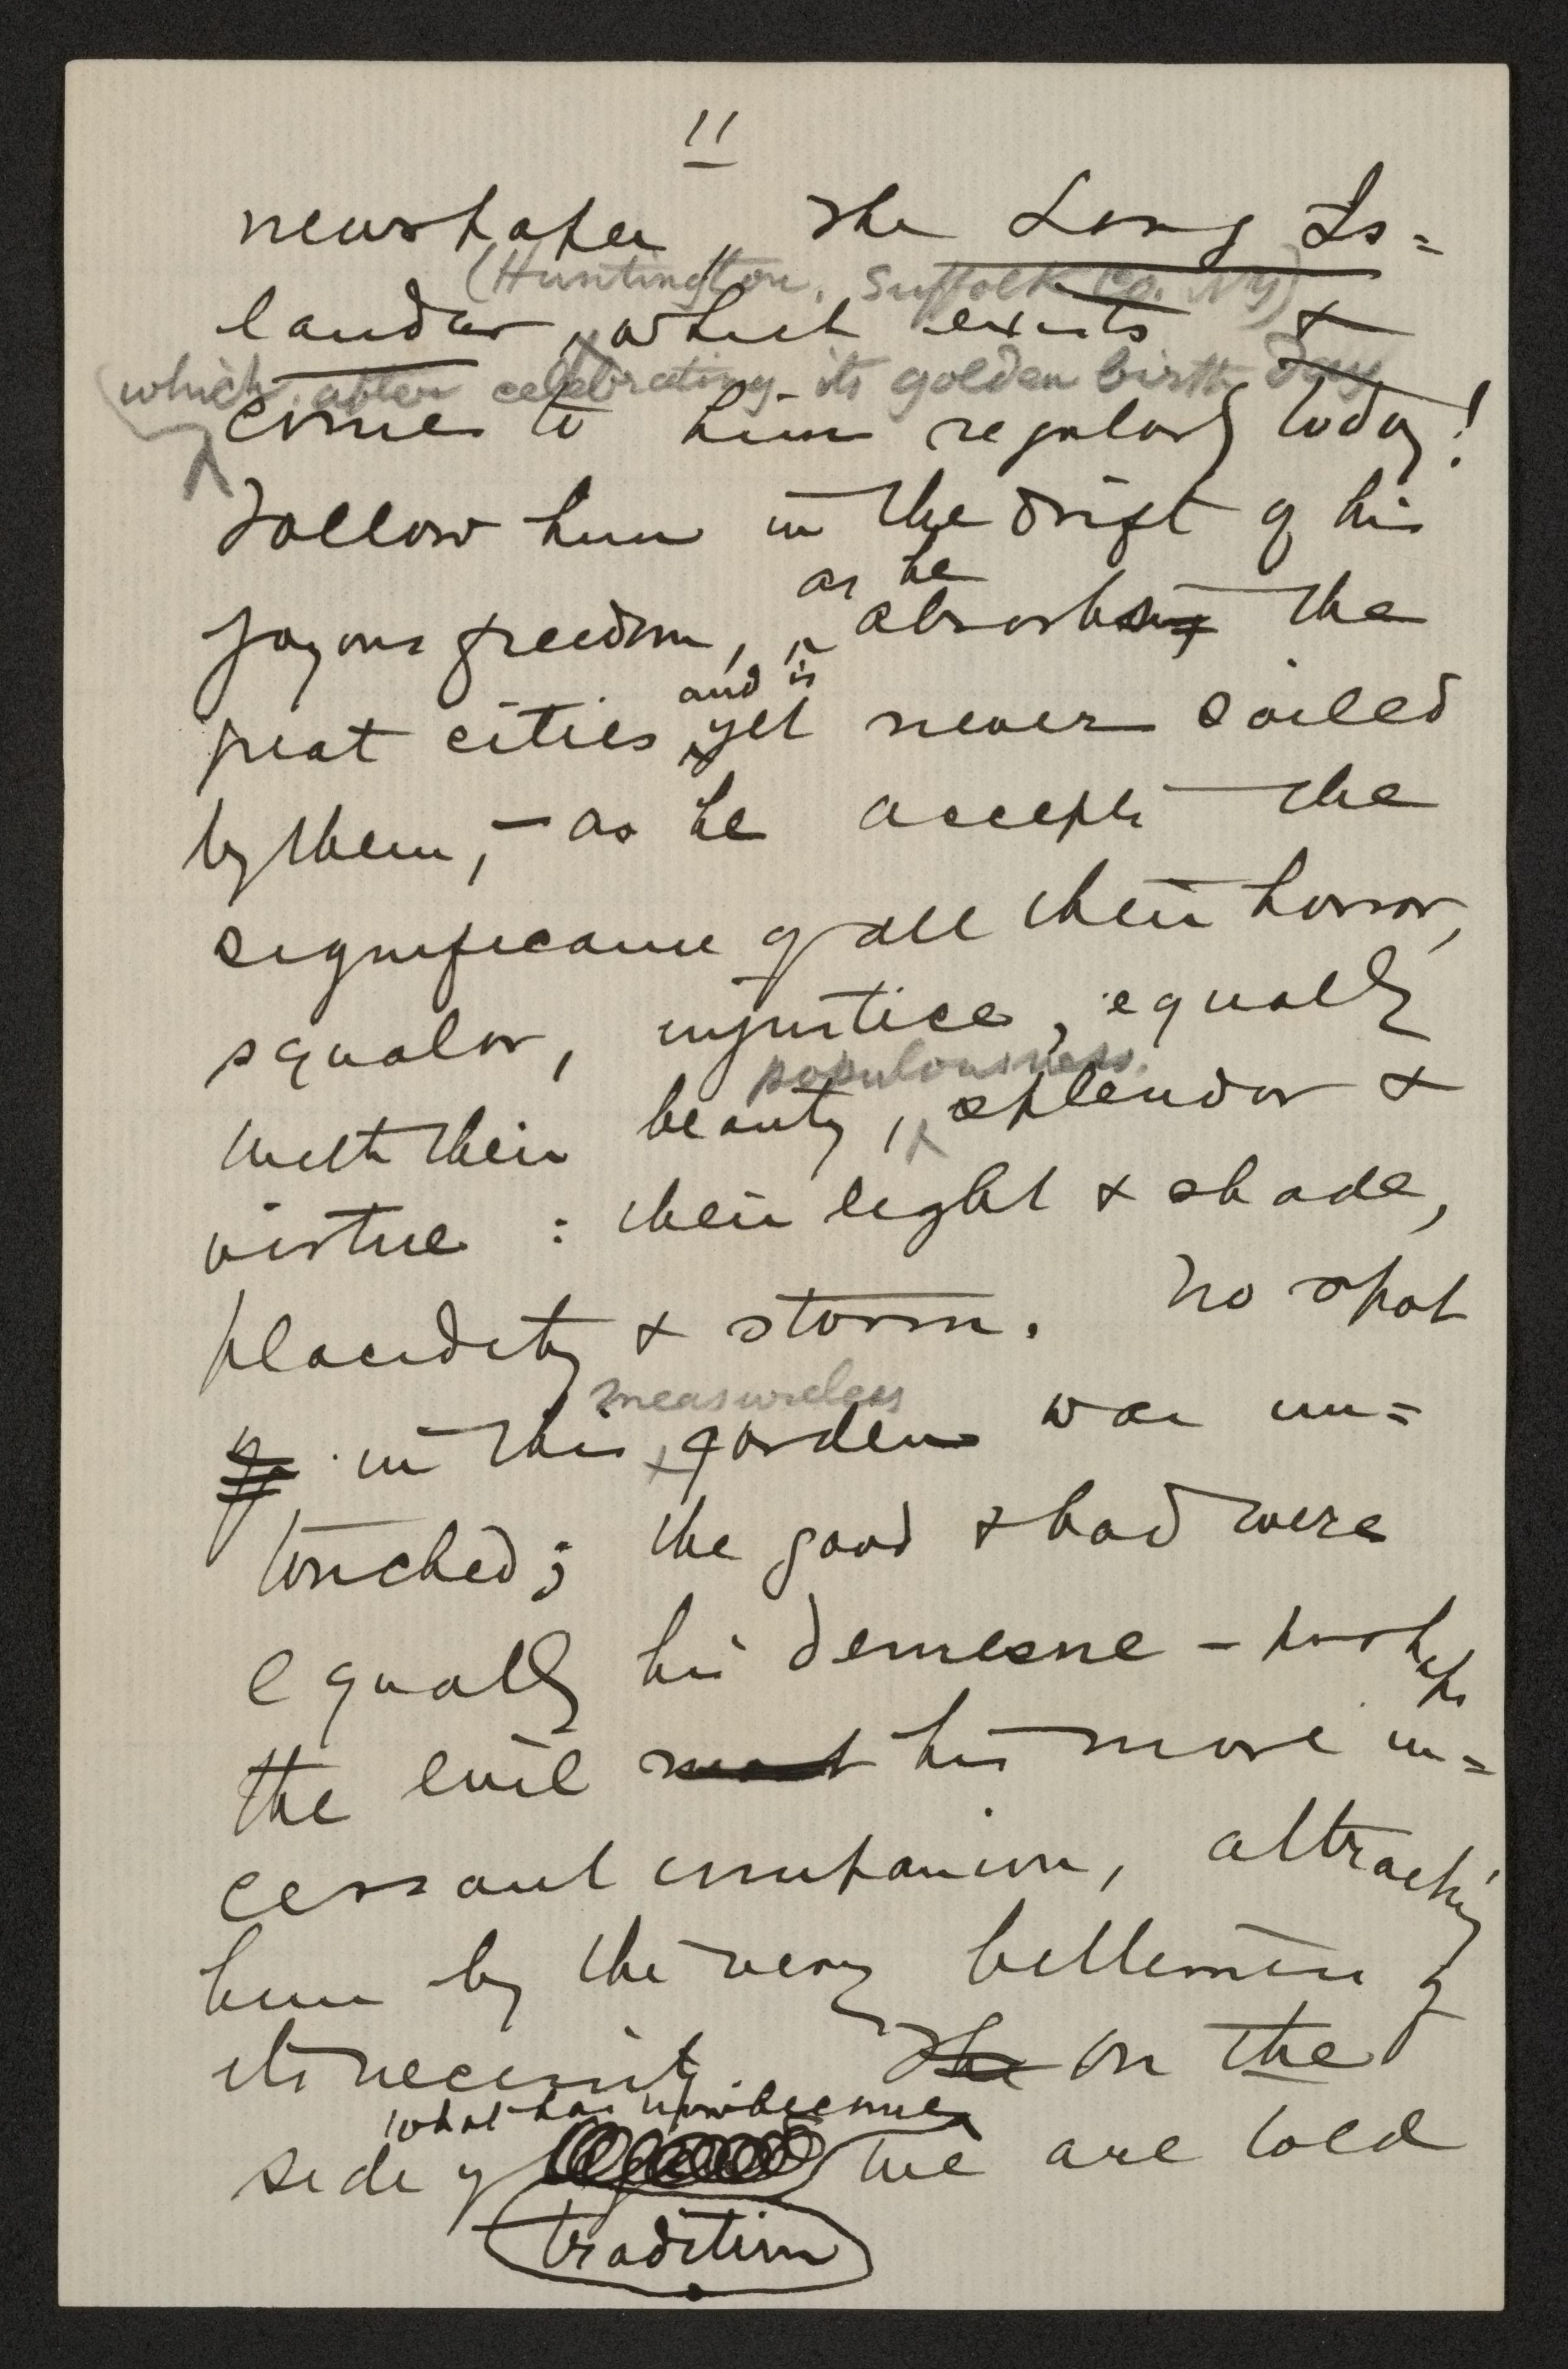 11
newspaper, The Long Is=
(Huntington, Suffolk Co. NY)
lander, which exists &
which, after celebrating its golden birth day
comes to him regularly today!
Follow him in the drift of his
as he
joyous freedom, absorbing the
and is
great cities yet never soiled
by them,- as he accepts the
significance of all their horror,
squalor, injustice, equally
populousness,
with their beauty, splendor &
virtue : their light & shade,
placidity & storm. No spot
measureless
in this garden was un=
touched; the good & bad were
equally his demesne - perhaps
the evil most his more in=
cessant companion, attracting
him by the very bitterness of
its necessity. The On the
what has now become
side of we are told
tradition